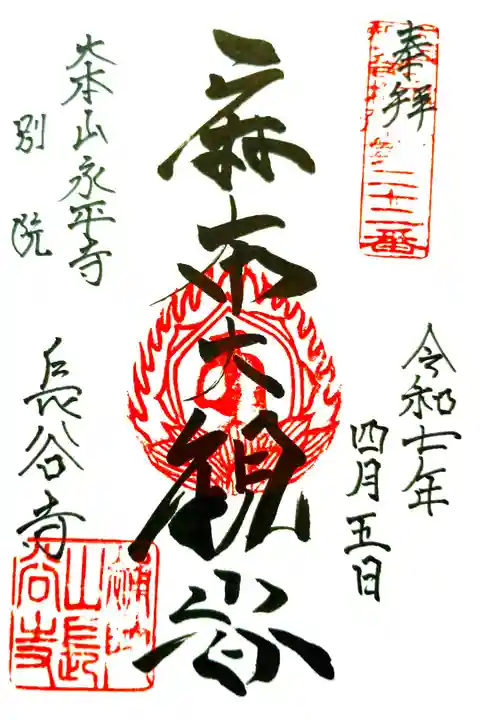 奉拝
第二十二番
令和七年
四月五日
麻布大観音
大本山永平寺
別院
長谷寺
補陀
山長
谷寺